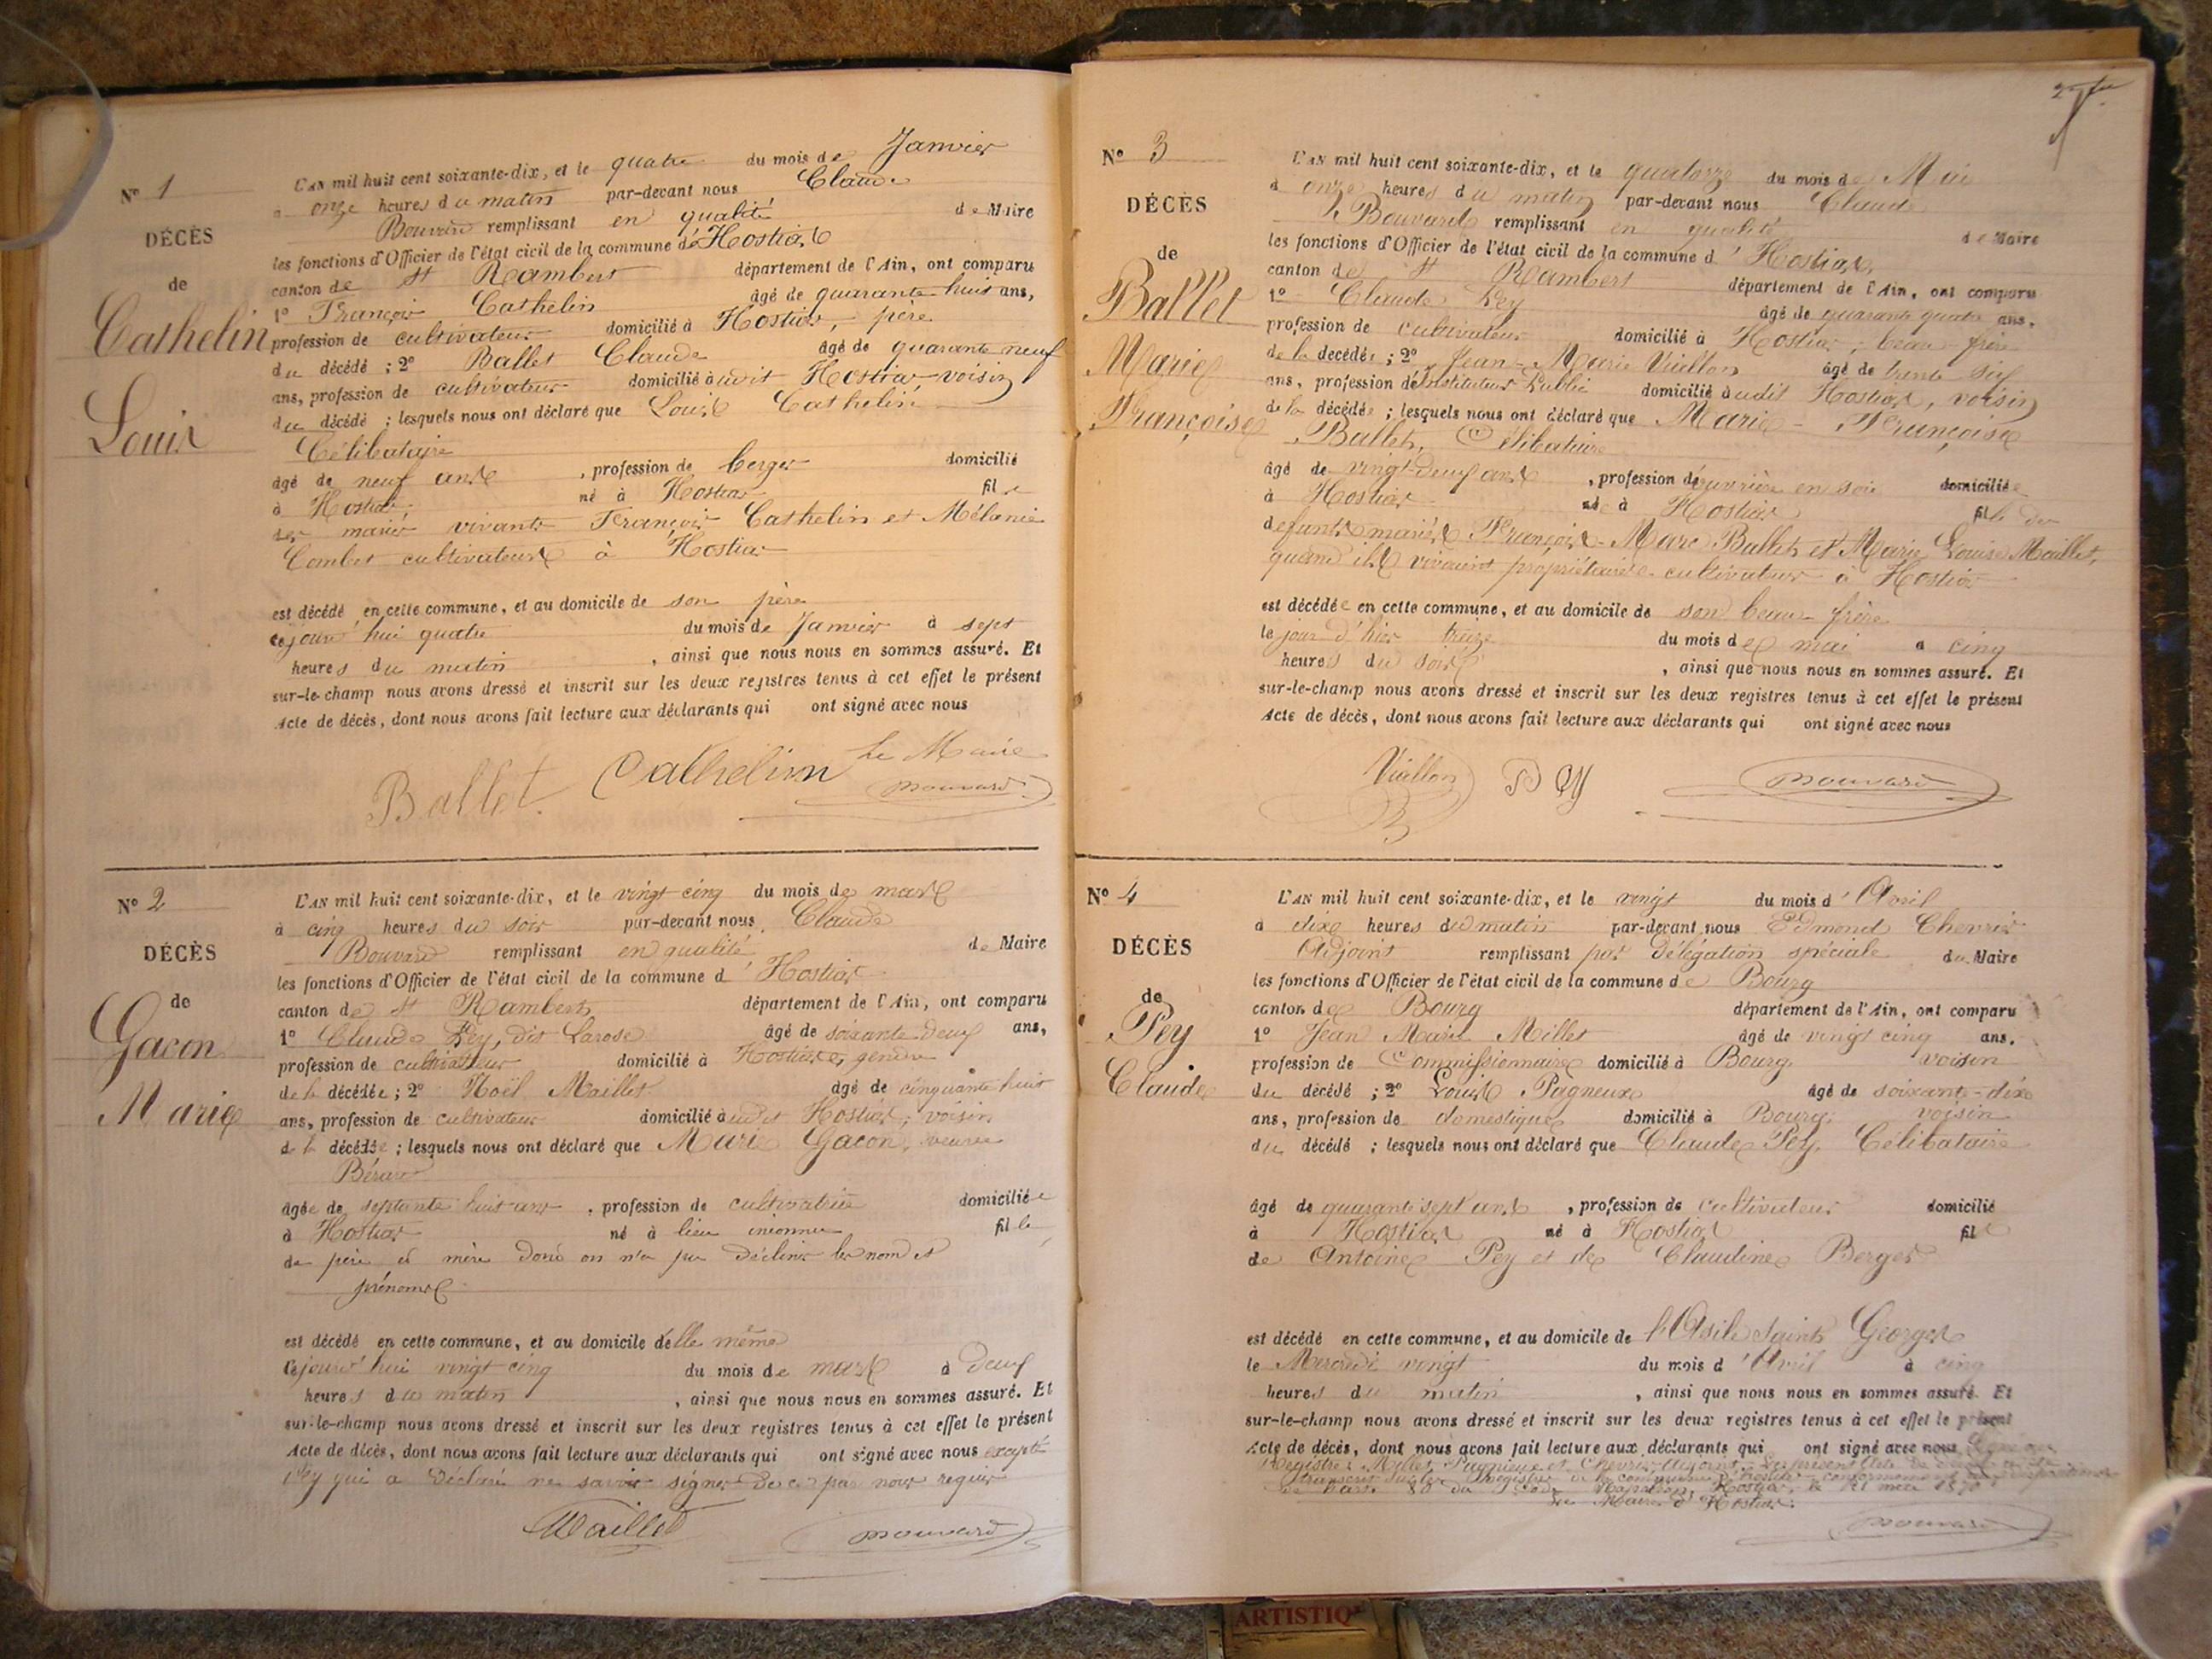 N° 1
DÉCÈS
de
Cathelin
Louis
L'AN mil huit cent soixante-dix, et le quatre du mois de Janvier
à onze heures du matin par-devant nous Claude
Bouvard remplissant en qualité de Maire
les fonctions d'Officier de l'état civil de la commune d'Hostias
canton de St Rambert département de l'Ain, ont comparu
1° François Cathelin âgé de quarante huit ans,
profession de cultivateur domicilié à Hostias, père
du décédé ; 2° Ballet Claude âgé de quarante neuf
ans, profession de cultivateur domicilié audit Hostias voisin
du décédé ; lesquels nous ont déclaré que Louis Cathelin
Célibataire
âgé de neuf ans , profession de berger domicilié
à Hostias, né à Hostias fils
des mariés vivants François Cathelin et Mélanie
Combet cultivateurs à Hostias
est décédé en cette commune, et au domicile de son père
cejourd'hui quatre du mois de Janvier à sept
heures du matin , ainsi que nous nous en sommes assuré. Et
sur-le-champ nous avons dressé et inscrit sur les deux registres tenus à cet effet le présent
Acte de décès, dont nous avons fait lecture aux déclarants qui ont signé avec nous
Le Maire
Ballet Cathelin Bouvard
N° 2
DÉCÈS
de
Gacon
Marie
L'AN mil huit cent soixante-dix, et le vingt cinq du mois de mars
à cinq heures du soir par-devant nous Claude
Bouvard remplissant en qualité de Maire
les fonctions d'Officier de l'état civil de la commune d'Hostias
canton de St Rambert département de l'Ain, ont comparu
1° Claude Pey, dit Larose âgé de soixante-deux ans,
profession de cultivateur domicilié à Hostias, gendre
de la décédée ; 2° Noël Maillet âgé de cinquante huit
ans, profession de cultivateur domicilié audit Hostias, voisin
de la décédée ; lesquels nous ont déclaré que Marie Gacon, veuve
Bérard
âgée de septante huit ans , profession de cultivatrice domiciliée
à Hostias né à lieu inconnu fille
de père et mère dont on n'a pu décliner les nom et
prénoms
est décédé en cette commune, et au domicile d'elle même
Cejourd'hui vingt-cinq du mois de mars à deux
heures du matin , ainsi que nous nous en sommes assuré. Et
sur-le-champ nous avons dressé et inscrit sur les deux registres tenus à cet effet le présent
Acte de décès, dont nous avons fait lecture aux déclarants qui ont signé avec nous excepté
Pey qui a déclaré ne savoir signer de ce par nous requis
Maillet Bouvard
N° 3
DÉCÈS
de
Ballet
Marie
Françoise
L'AN mil huit cent soixante-dix, et le quatorze du mois de Mai
à onze heures du matin par-devant nous Claude
Bouvard remplissant en qualité de Maire
les fonctions d'Officier de l'état civil de la commune d'Hostias
canton de St Rambert département de l'Ain, ont comparu
1° Claude Pey âgé de quarante quatre ans,
profession de cultivateur domicilié à Hostias, beau-frère
de la décédée ; 2° Jean-Marie Vuillon âgé de trente six
ans, profession d'Instituteur Public domicilié audit Hostias, voisin
de la décédée ; lesquels nous ont déclaré que Marie-Françoise
Ballet, Célibataire
âgé de vingt-deux ans , profession d'ouvrière en soie domiciliée
à Hostias née à Hostias fille de
défunts mariés François-Marc Ballet et Marie Louise Maillet,
quand ils vivaient propriétaires cultivateurs à Hostias
est décédée en cette commune, et au domicile de son beau frère
le jour d'hier treize du mois de mai à cinq
heures du soir , ainsi que nous nous en sommes assuré. Et
sur-le-champ nous avons dressé et inscrit sur les deux registres tenus à cet effet le présent
Acte de décès, dont nous avons fait lecture aux déclarants qui ont signé avec nous
Vuillon Pey Bouvard
N° 4
DÉCÈS
de
Pey
Claude
L'AN mil huit cent soixante-dix, et le vingt du mois d'Avril
à dix heures du matin par-devant nous Edmond Chevrier
Adjoint remplissant par délégation spéciale du Maire
les fonctions d'Officier de l'état civil de la commune de Bourg
canton de Bourg département de l'Ain, ont comparu
1° Jean Marie Millet âgé de vingt cinq ans,
profession de Commissionnaire domicilié à Bourg, voisin
du décédé ; 2° Louis Pagneux âgé de soixante-dix
ans, profession de domestique domicilié à Bourg, voisin
du décédé ; lesquels nous ont déclaré que Claude Pey, Célibataire
âgé de quarante sept ans , profession de cultivateur domicilié
à Hostias né à Hostias fils
de Antoine Pey et de Claudine Berger
est décédé en cette commune, et au domicile de l'Asile Saint Georges
le Mercredi vingt du mois d'Avril à cinq
heures du matin , ainsi que nous nous en sommes assuré. Et
sur-le-champ nous avons dressé et inscrit sur les deux registres tenus à cet effet le présent
Acte de décès, dont nous avons fait lecture aux déclarants qui ont signé avec nous
registre : Millet, Pagneux et Chevrier, adjoint. Le présent acte de décès
transcrit sur le registre de la commune d'Hostias conformément
de l'art. 80 du Code Napoléon. Hostias, le mai 1870
Le Maire d'Hostias.
Bouvard
ARTISTIQ